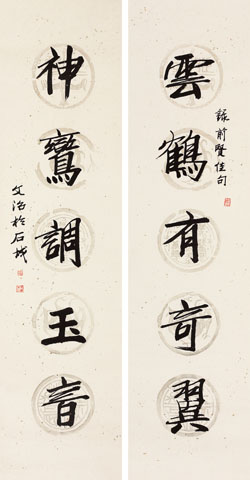 錄前賢佳句
雲鶴有奇翼
神鸞調玉音
文治於石城